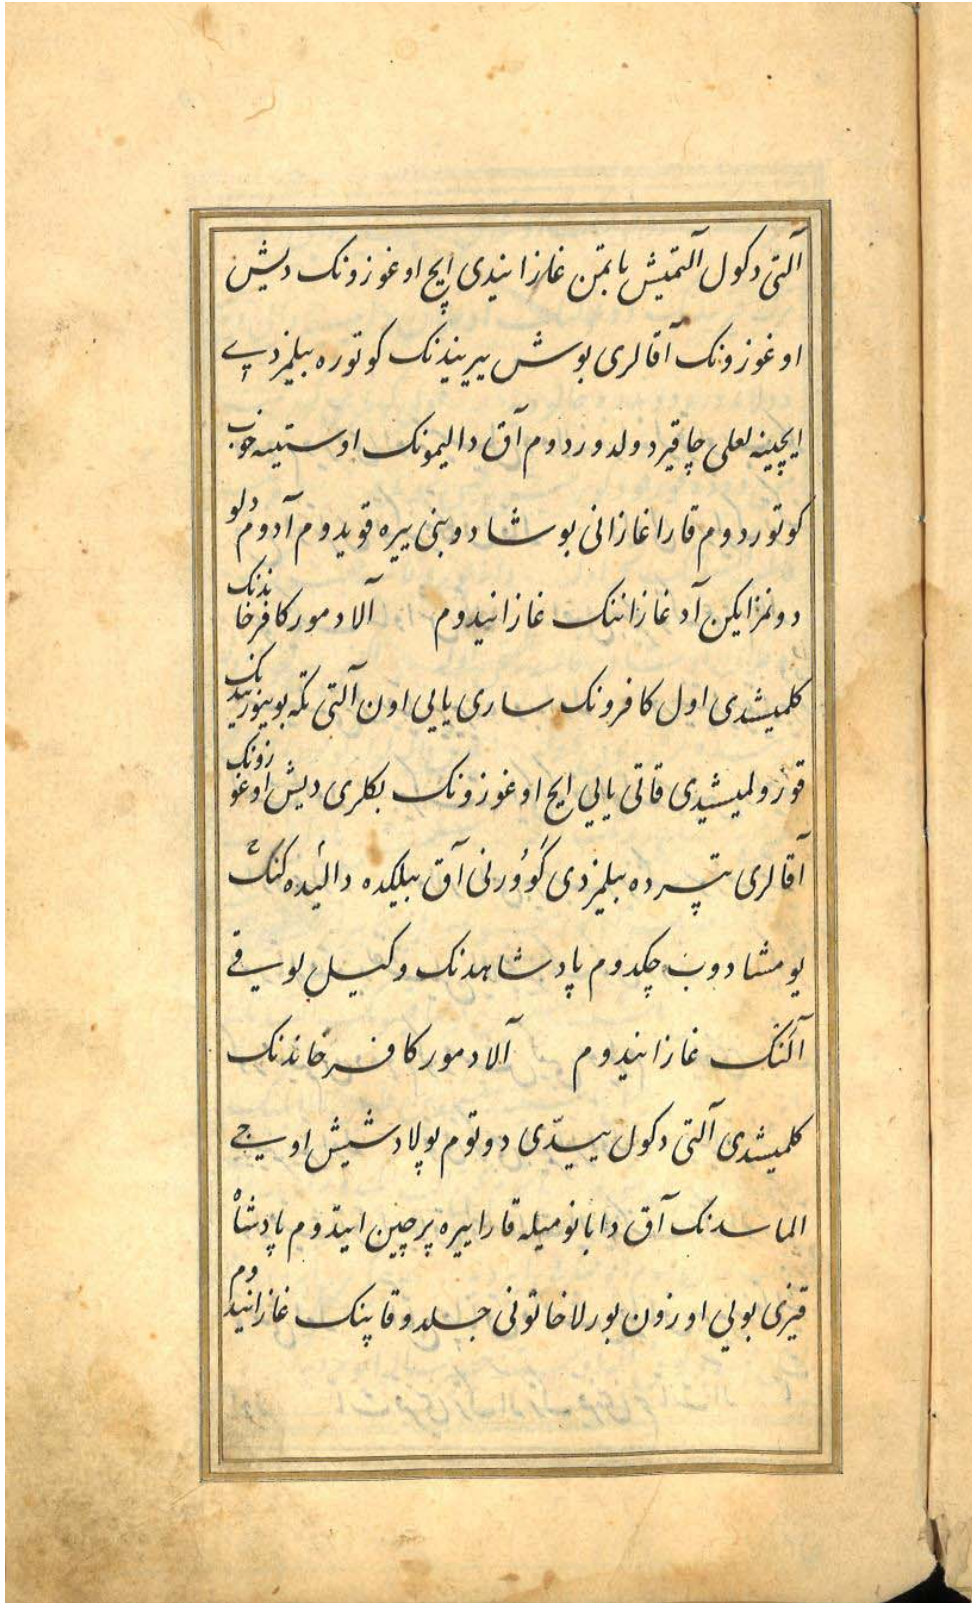 آلتی دکول آلتمیش باتمن غازانیدی ایچ اوغوزونک دیش
اوغوزونک آقالری بوش ییریندنک کوتوره بیلمزدی
ایچینه لعلی چاقیر دولدوردوم آق دالیمونک اوستینه خوب
کوتوردوم قارا غازانی بوشادوبنی ییره قویدوم آدوم دلو
دونمز ایکن آد غازاننک غازانیدوم آلا دمور کافر خاندنک
کلمیشدی اول کافرونک ساری یایی اون آلتی تکه بوینوزیندنک
قوزولمیشیدی قاتی یایی ایچ اوغوزونک بکلری دیش اوغوزونک
آقالری تپرده بیلمزدی کؤورنی آق بیلکده دالیده کنک
یومشادوب چکدوم پادشاهدنک وکیل لوقی
آلنک غازانیدوم آلا دمور کافر خاندنک
کلمیشدی آلتی دکول ییدّی دوتوم پولاد شیش اوجی
الماسدنک آق دابانومیله قارا ییره پرچین ایتدوم پادشاه
قیزی بولی اوزون بورلا خاتونی جلدو قاپنک غازانیدوم